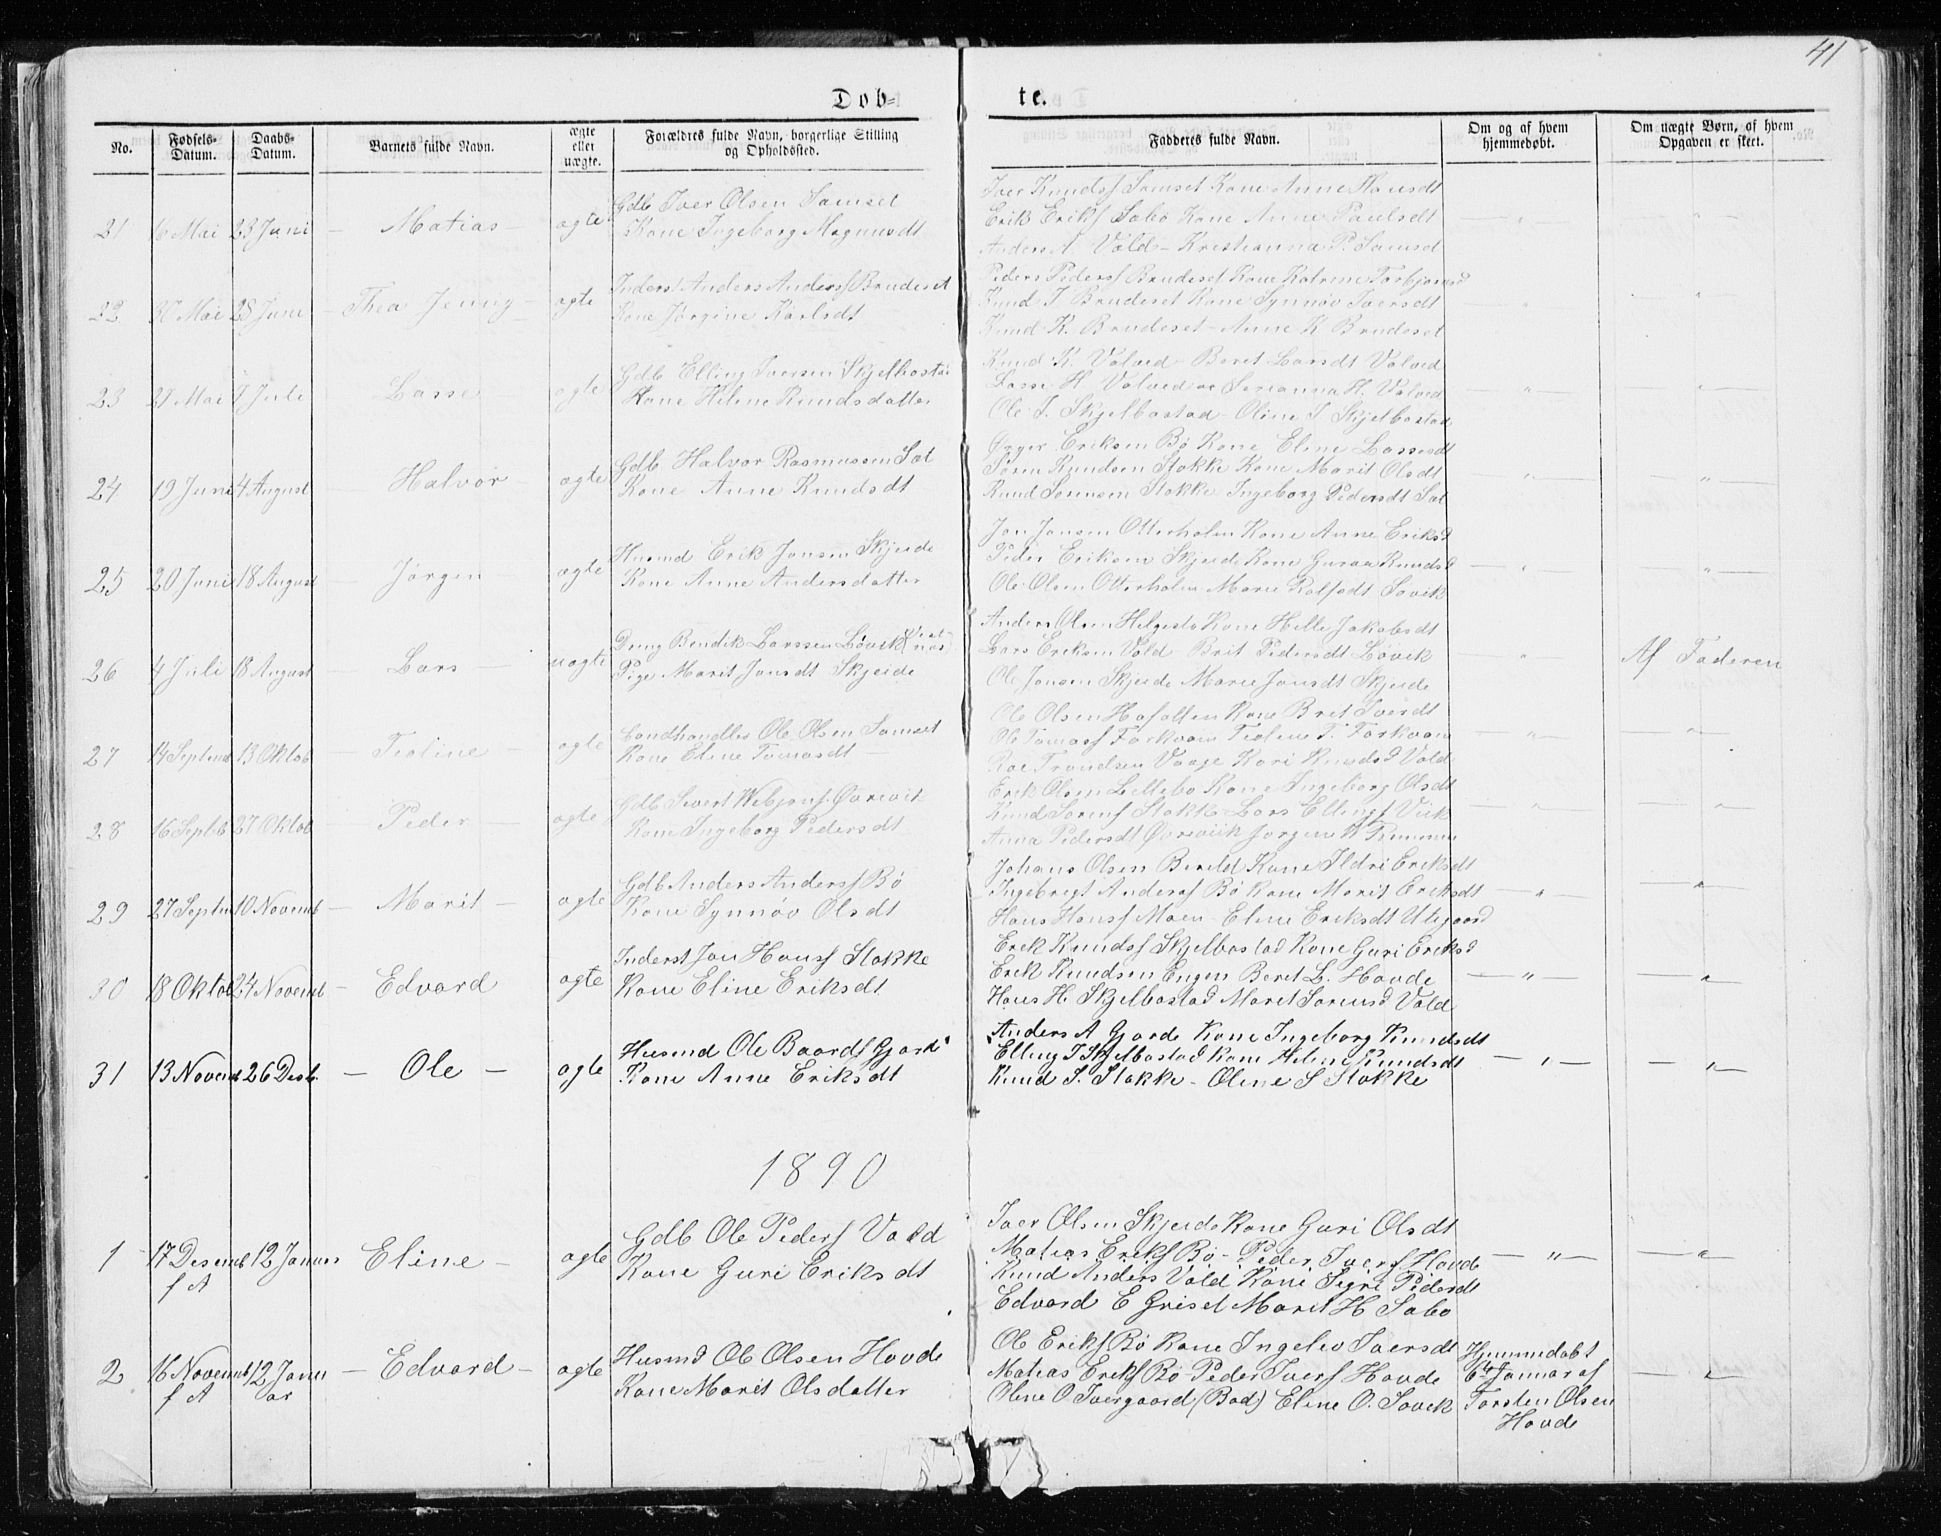 41
Døb-
te.
No.
Fødsels-
Datum.
Daabs-
Datum.
Barnets fulde Navn.
ægte
eller
uægte.
Forældres fulde Navn, borgerlige Stilling
og Opholdssted.
Fadderes fulde Navn.
Om og af hvem
hjemmedøbt.
Om uægte Børn, af hvem
Opgaven er skeet.
21 6 Mai 23 Juni Matias ægte
Gdb Iver Olsen Samset
Kone Ingeborg Magnusdt
Iver Knuds Samset Kone Anne Hansdt
Erik Eriks Sæbø Kone Anne Paulsdt
Anders A. Vold - Kristianna P. Samset
22 Mai 28 Juni Thea Jenny ægte
Inderst Anders Anders Brudeset
Kone Jørgine Karlsdt
Peders Peders Brudeset Kone Katrine
Knud I. Brudeset Kone Synnøv Iversdt
Knud K. Brudeset - Anne K Brudeset
23 Mai 7 Juli Lasse ægte
Gdb Elling Iversen Skjelbostad
Kone Helene Knudsdatter
Knud K. Valved - Beret Larsdt Valved
Lasse H. Valved H. Valved
Ole I. Skjelbostad - Oline I Skjelbostad
24 19 Juni 4 August Halvor ægte
Gdb Halvor Rasmussen Sæt
Kone Anne Knudsdt
Eriksen Bø Kone Eline Lassesdt
Søren Knudsen Stokke Kone Marit Olsdt
Knud Sørensen Stokke Ingeborg Pedersdt Sæt
25 20 Juni 18 August Jørgen ægte
Husmd Erik Jonsen Skjeide
Kone Anne Andersdatter
Jon Jonsen Otterholm Kone Anne Eriksd
Peder Eriksen Skjeide Kone Knudsd
Ole Olsen Otterholm Marie Søvik
26 4 Juli 18 August Lars uægte
Dreng Bendik Larssen Løvik
Pige Marit Jonsdt Skjeide
Anders Olsen Kone Jakobsdt
Lars Eriksen Vold - Brit Pedersdt Løvik
Ole Jonsen Skjeide Marie Jonsdt Skjeide
Af Faderen
27 14 Septemb 13 Oktob ægte
Landhandler Ole Olsen Samset
Kone Eline Tomasdt
Ole Olsen Kone Bret Iversdt
Ole Tomass
Trondsen Vaage Kari Knudsd Vold
28 16 Septb 27 Oktob Peder ægte
Gdb Sivert
Kone Ingeborg Pedersdt
Erik Olsen Lillebø Kone Ingeborg Olsdt
Knud Sørens Stokke - Lars Ellings Viik
Anna Pedersdt
29 27 Septem 10 Novemb Marit ægte
Gdb Anders Anders Bø
Kone Synnøv Olsdt
Johans Olsen Kone Ildri Eriksdt
Ingebrigt Anders Bø Kone Marit Eriksdt
Hans Hans Moen - Eline Eriksdt Utigaard
30 18 Oktob 24 Novemb Edvard ægte
Inderst Jon Hans Stokke
Kone Eline Eriksdt
Erik Knuds Skjelbostad Kone Guri Eriksd
Erik Knudsen Engen Beret L. Hovde
Hans H. Skjelbostad Marit Sørensd Vold
31 13 Novemb 26 Desb. Ole ægte
Husmd Ole Baards Gjørde
Kone Anne Eriksdt
Anders A Gjørde Kone Ingeborg Knudsdt
Elling I Skjelbostad Kone Helene Knudsdt
Knud S. Stokke - Oline S Stokke
1890
1 17 Desemb 12 Januar Eline ægte
f A
Gdb Ole Peders Vold
Kone Guri Eriksdt
Iver Olsen Skjeide Kone Guri Olsdt
Matias Eriks Bø - Peder Ivers Hovde
Knud Anders Vold Kone Sigri Pedersdt
Edvard E Griset Marit H Sæbø
2 16 Novemb 12 Janu Edvard ægte
f A ar
Husmd Ole Olsen Hovde
Kone Marit Olsdatter
Ole Eriks Bø Kone Ingelev Iversdt
Matias Eriks Bø - Peder Ivers Hovde
Oline O. Ivergaard (Bod) Eline O. Søvik
Hjemmedøbt
6te Januar af
Torsten Olsen
Hovde